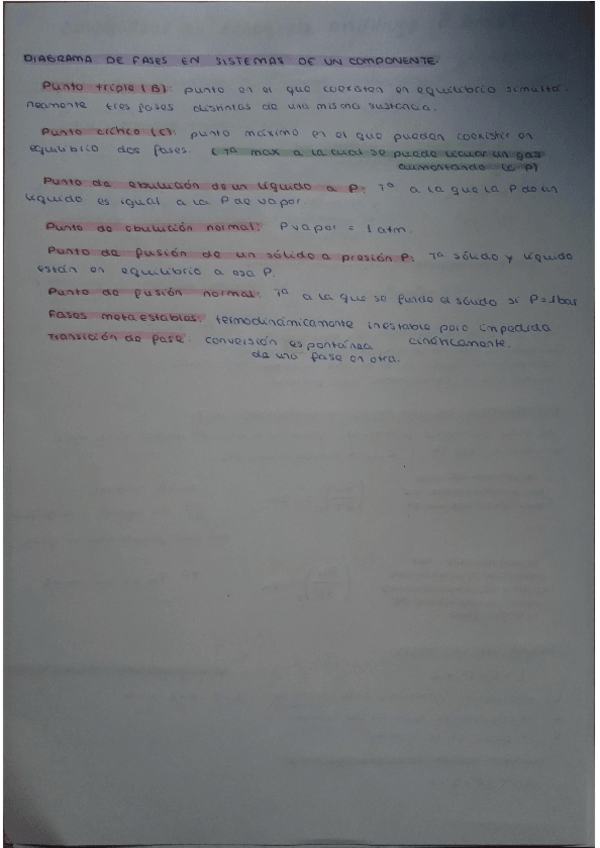 DIAGRAMA DE FASES EN SISTEMAS DE UN COMPONENTE.
Punto triple (B): punto en el que coexisten en equilibrio simultá-
neamente tres fases distintas de una misma sustancia.
Punto crítico (C): punto máximo en el que pueden coexistir en
equilibrio dos fases. (Tª max a la cual se puede licuar un gas
aumentando la P)
Punto de ebullición de un líquido a P: Tª a la que la P de un
líquido es igual a la P de vapor.
Punto de ebullición normal: P vapor = 1 atm.
Punto de fusión de un sólido a presión P: Tª sólido y líquido
están en equilibrio a esa P.
Punto de fusión normal: Tª a la que se funde el sólido si P=1bar
Fases metaestables: termodinámicamente inestable pero impedida
cinéticamente.
Transición de fase: conversión espontánea
de una fase en otra.